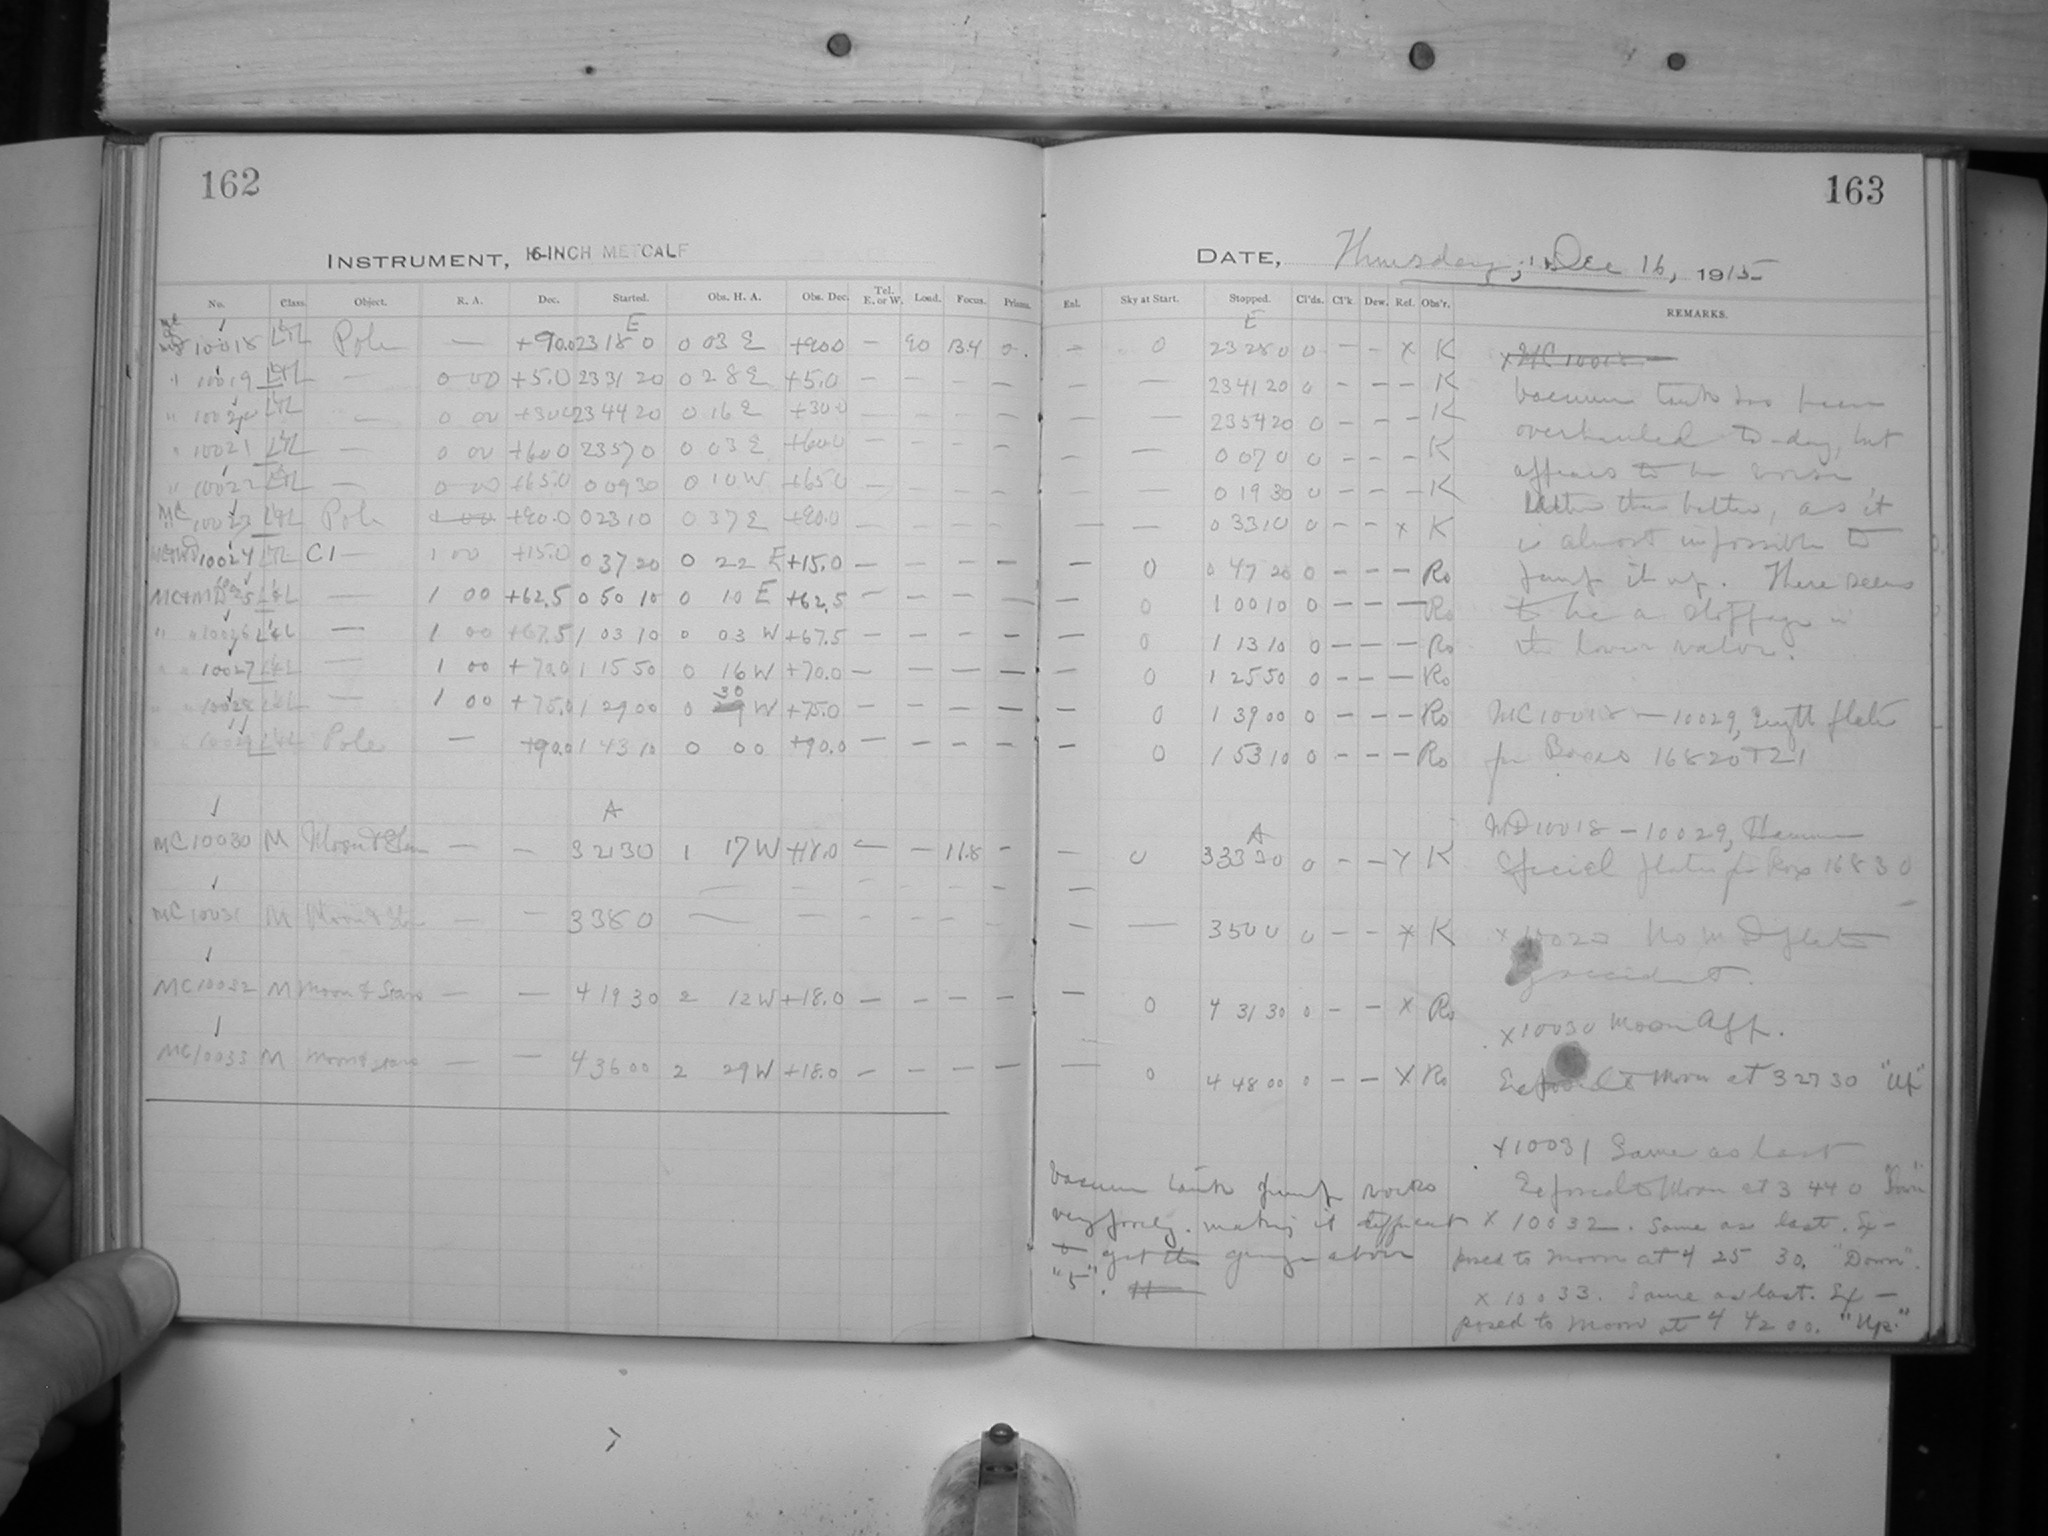 162
INSTRUMENT, 16-INCH METCALF
No. Class. Object. R. A. Dec. Started. Obs. H. A. Obs. Dec. Tel. E. or W. Load. Focus. Prisms.
E
10018 Pole — +90.0 23 18 0 0 03 E +90.0 — 90 13.4 0.
" 10019 — 0 00 +5.0 23 31 20 0 28 E +5.0 — — — —
" 10020 — 0 00 +30.0 23 44 20 0 16 E +30.0 — — — —
" 10021 — 0 00 +60.0 23 57 0 0 03 E +60.0 — — — —
" 10022 — 0 00 +65.0 0 09 30 0 10 W +65.0 — — — —
MC 10023 Pole +90.0 0 23 10 0 37 E +90.0 — — — —
10024 C1 — 1 00 +15.0 0 37 20 0 22 E +15.0 — — — —
MC+MD — 1 00 +62.5 0 50 10 0 10 E +62.5 — — — —
" " 10026 L&L — 1 00 +67.5 1 03 10 0 03 W +67.5 — — — —
" " 10027 L&L — 1 00 +70.0 1 15 50 0 16 W +70.0 — — — —
" " 10028 L&L — 1 00 +75.0 1 29 00 0 30 W +75.0 — — — —
" " 10029 L&L Pole — +90.0 1 43 10 0 00 +90.0 — — — —
A
MC 10030 M Moon & Stars — — 3 21 30 1 17 W +18.0 — — 11.8 —
MC 10031 M Moon & Stars — — 3 38 0 — — — — — —
MC 10032 M Moon & Stars — — 4 19 30 2 12 W +18.0 — — — —
MC 10033 M Moon & Stars — — 4 36 00 2 29 W +18.0 — — — —
163
DATE, Thursday, Dec 16, 1915
Eal. Sky at Start. Stopped. Cl'ds. Cl'k. Dew. Ref. Obs'r. REMARKS.
E
— 0 23 28 0 0 — — x K
— — 23 41 20 0 — — — K
— — 23 54 20 0 — — — K
— — 0 07 0 0 — — — K
— — 0 19 30 0 — — — K
— — 0 33 10 0 — — x K
— 0 0 47 20 0 — — — Ro
0 1 00 10 0 — — — Ro
— 0 1 13 10 0 — — — Ro
— 0 1 25 50 0 — — — Ro
— 0 1 39 00 0 — — — Ro
— 0 1 53 10 0 — — — Ro
A
— 0 3 33 30 0 — — x K
— — 3 50 0 0 — — x K
— 0 4 31 30 0 — — x Ro
— 0 4 48 00 0 — — x Ro
Vacuum tank pump works
very poorly. making it difficult
to get the gauge above
"5".
x MC 10018 —
Vacuum tank has been
overhauled to-day, but
appears to be worse
rather than better, as it
is almost impossible to
pump it up. There seems
to be a stoppage in
the lower valve.
MC 10018 — 10029, plate
for Boxes 16820 + 21
MD 10018 — 10029, Hammer
Special plates for Box 16830
x 10020 No MD plate
accident.
x 10030 Moon App.
Exposed to Moon at 3 27 30 "Up"
x 10031 Same as last
Exposed to Moon at 3 44 0 "Down"
x 10032. Same as last. Ex-
posed to moon at 4 25 30. "Down".
x 10033. Same as last. Ex-
posed to moon at 4 42 00. "Up."